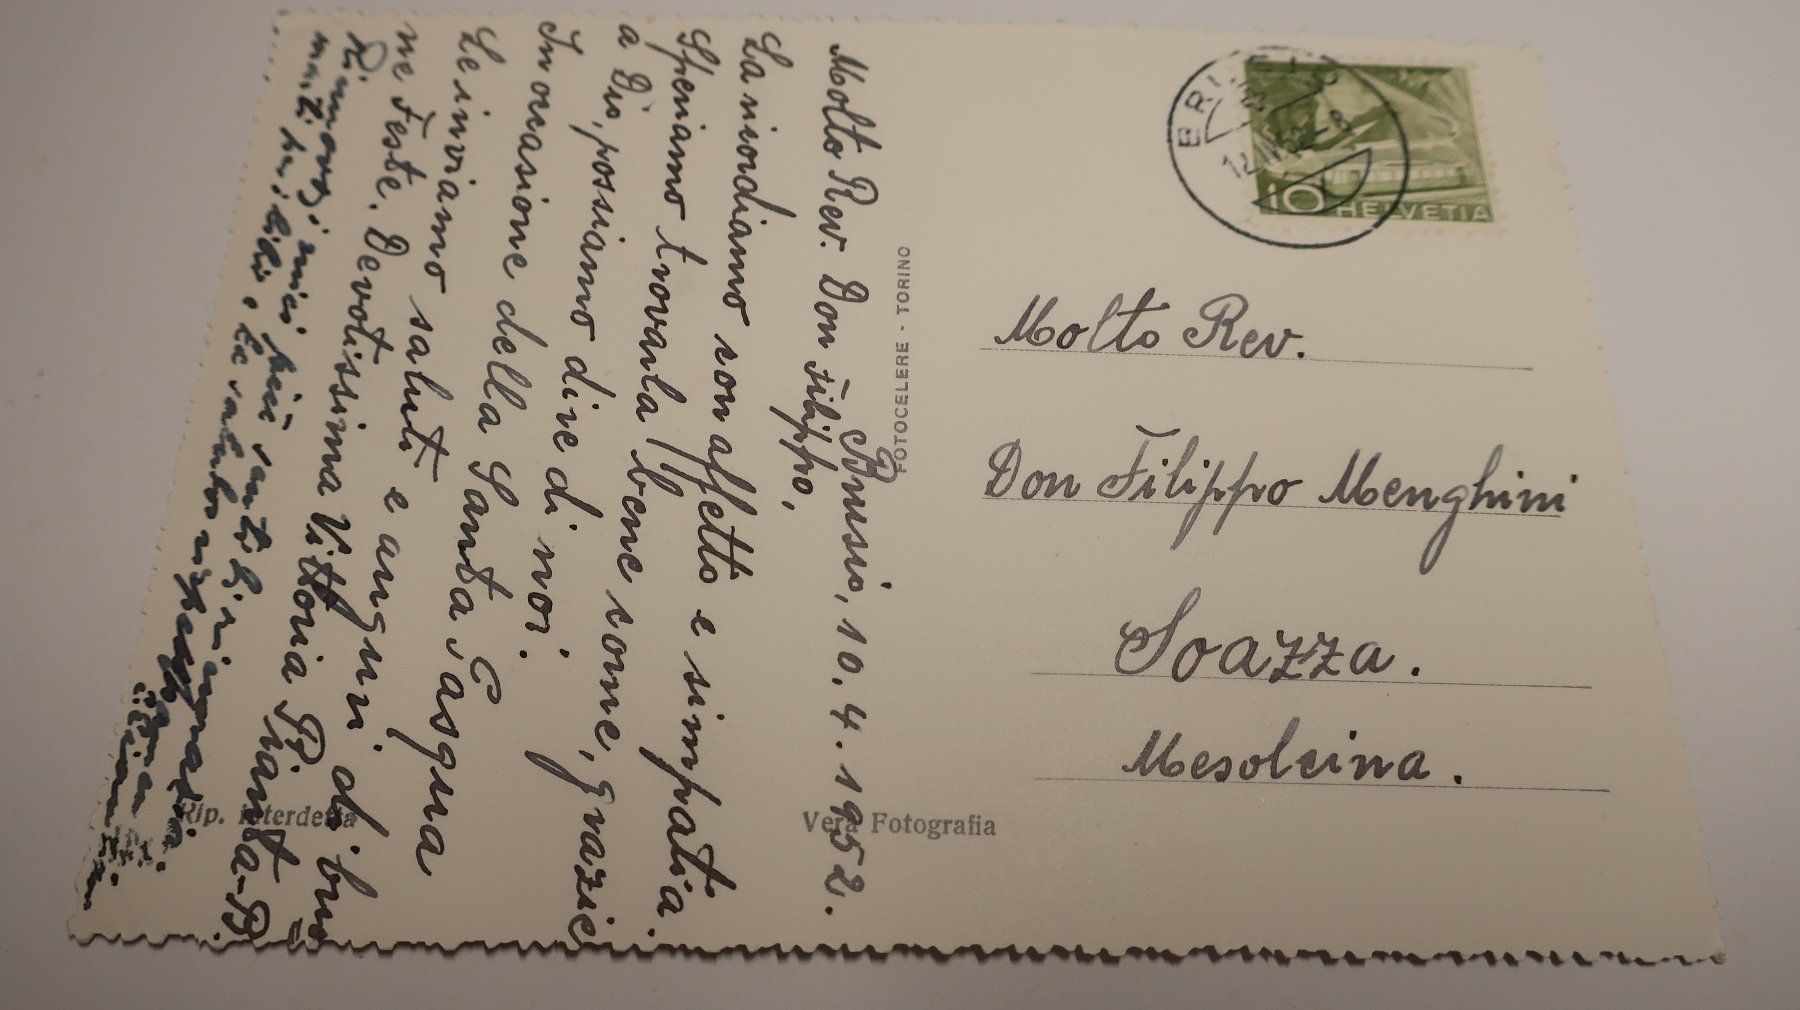 Brusio, 10.4.1952.
Molto Rev. Don Filippo,
La ricordiamo con affetto e simpatia.
Speriamo trovarla bene come, grazie
a Dio, possiamo dire di noi.
In occasione della Santa Pasqua
Le inviamo saluti e auguri di buo=
ne Feste. Devotissima Vittoria Pianta-B.
Rinnovo i miei più sentiti ringrazia
menti e La saluto
FOTOCELERE - TORINO
Rip. interdetta
Vera Fotografia
BRUSIO
10 HELVETIA
Molto Rev.
Don Filippo Menghini
Soazza.
Mesolcina.